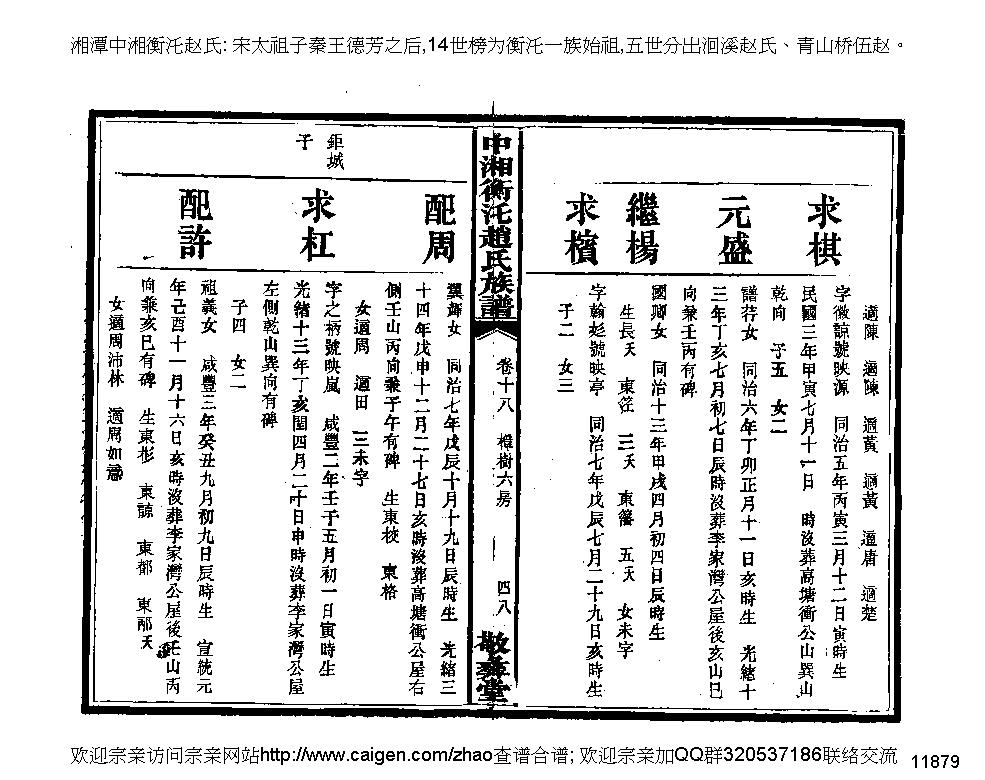 湘潭中湘衡汑赵氏: 宋太祖子秦王德芳之后,14世榜为衡汑一族始祖,五世分出洄溪赵氏、青山桥伍赵。
適陳 適陳 適黃 適黃 適唐 適楚
求棋
字微諒號映源 同治五年丙寅三月十二日寅時生
民國三年甲寅七月十一日 時沒葬高塘衝公山巽山
乾向 子五 女二
元盛
譜荐女 同治六年丁卯正月十一日亥時生 光緒十
三年丁亥七月初七日辰時沒葬李家灣公屋後亥山巳
向兼壬丙有碑
繼楊
國卿女 同治十三年甲戌四月初四日辰時生
生長夭 東 三夭 東籓 五夭 女未字
求檳
字翰彪號映亭 同治七年戊辰七月二十九日亥時生
子二 女三
中湘衡汑趙氏族譜
卷十八 樟樹六房
四八
敬彝堂
配周
翼舞女 同治七年戊辰十月十九日辰時生 光緒三
十四年戊申十二月二十七日亥時沒葬高塘衝公屋右
側壬山丙向兼子午有碑 生東 東格
女適周 適田 三未字
鉅城
子
求杠
字之柄號映嵐 咸豐二年壬子五月初一日寅時生
光緒十三年丁亥閏四月二十日申時沒葬李家灣公屋
左側乾山巽向有碑
子四 女二
配許
祖義女 咸豐三年癸丑九月初九日辰時生 宣統元
年己酉十一月十六日亥時沒葬李家灣公屋後壬山丙
向兼亥巳有碑 生東彬 東諒 東都 東部夭
女適周沛林 適周如意
欢迎宗亲访问宗亲网站http://www.caigen.com/zhao查谱合谱; 欢迎宗亲加QQ群320537186联络交流
11879